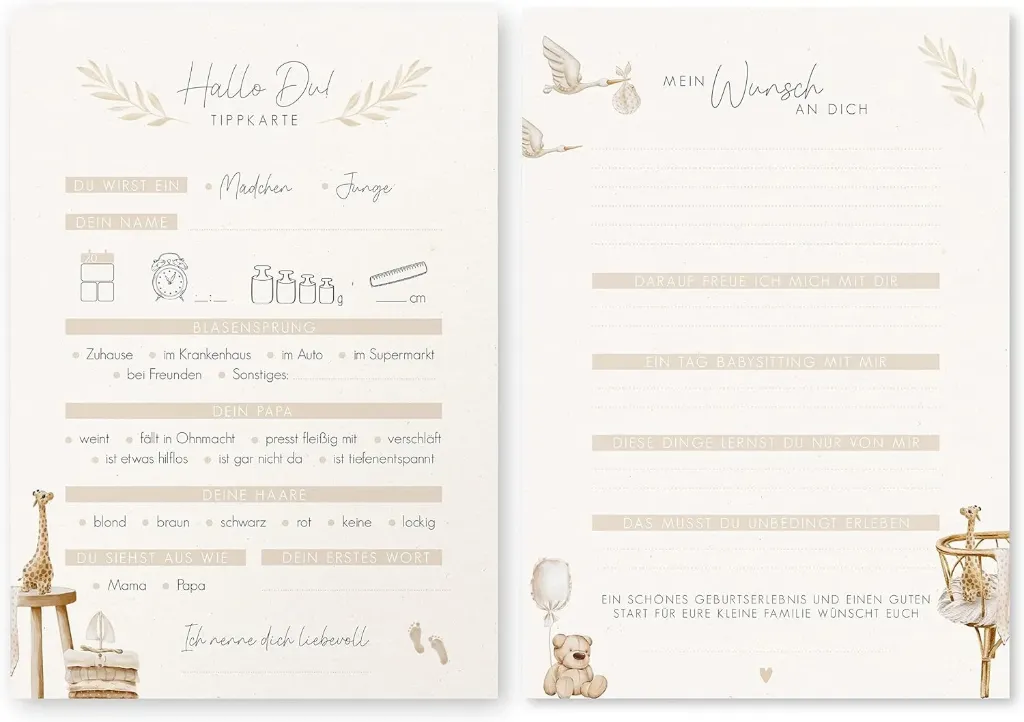 Hallo Du!
TIPPKARTE
DU WIRST EIN Mädchen Junge
DEIN NAME
20
__:__ g ____ cm
BLASENSPRUNG
Zuhause im Krankenhaus im Auto im Supermarkt
bei Freunden Sonstiges:
DEIN PAPA
weint fällt in Ohnmacht presst fleißig mit verschläft
ist etwas hilflos ist gar nicht da ist tiefenentspannt
DEINE HAARE
blond braun schwarz rot keine lockig
DU SIEHST AUS WIE DEIN ERSTES WORT
Mama Papa
Ich nenne dich liebevoll
MEIN Wunsch
AN DICH
DARAUF FREUE ICH MICH MIT DIR
EIN TAG BABYSITTING MIT MIR
DIESE DINGE LERNST DU NUR VON MIR
DAS MUSST DU UNBEDINGT ERLEBEN
EIN SCHÖNES GEBURTSERLEBNIS UND EINEN GUTEN
START FÜR EURE KLEINE FAMILIE WÜNSCHT EUCH